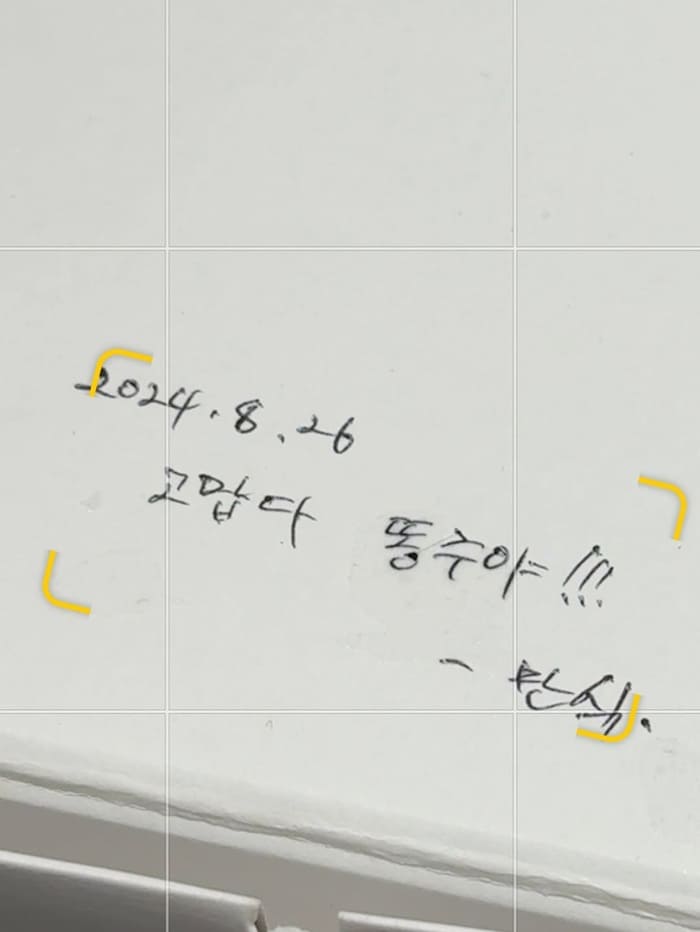 2024.8.26
고맙다 똥수야!!!
- 환식.